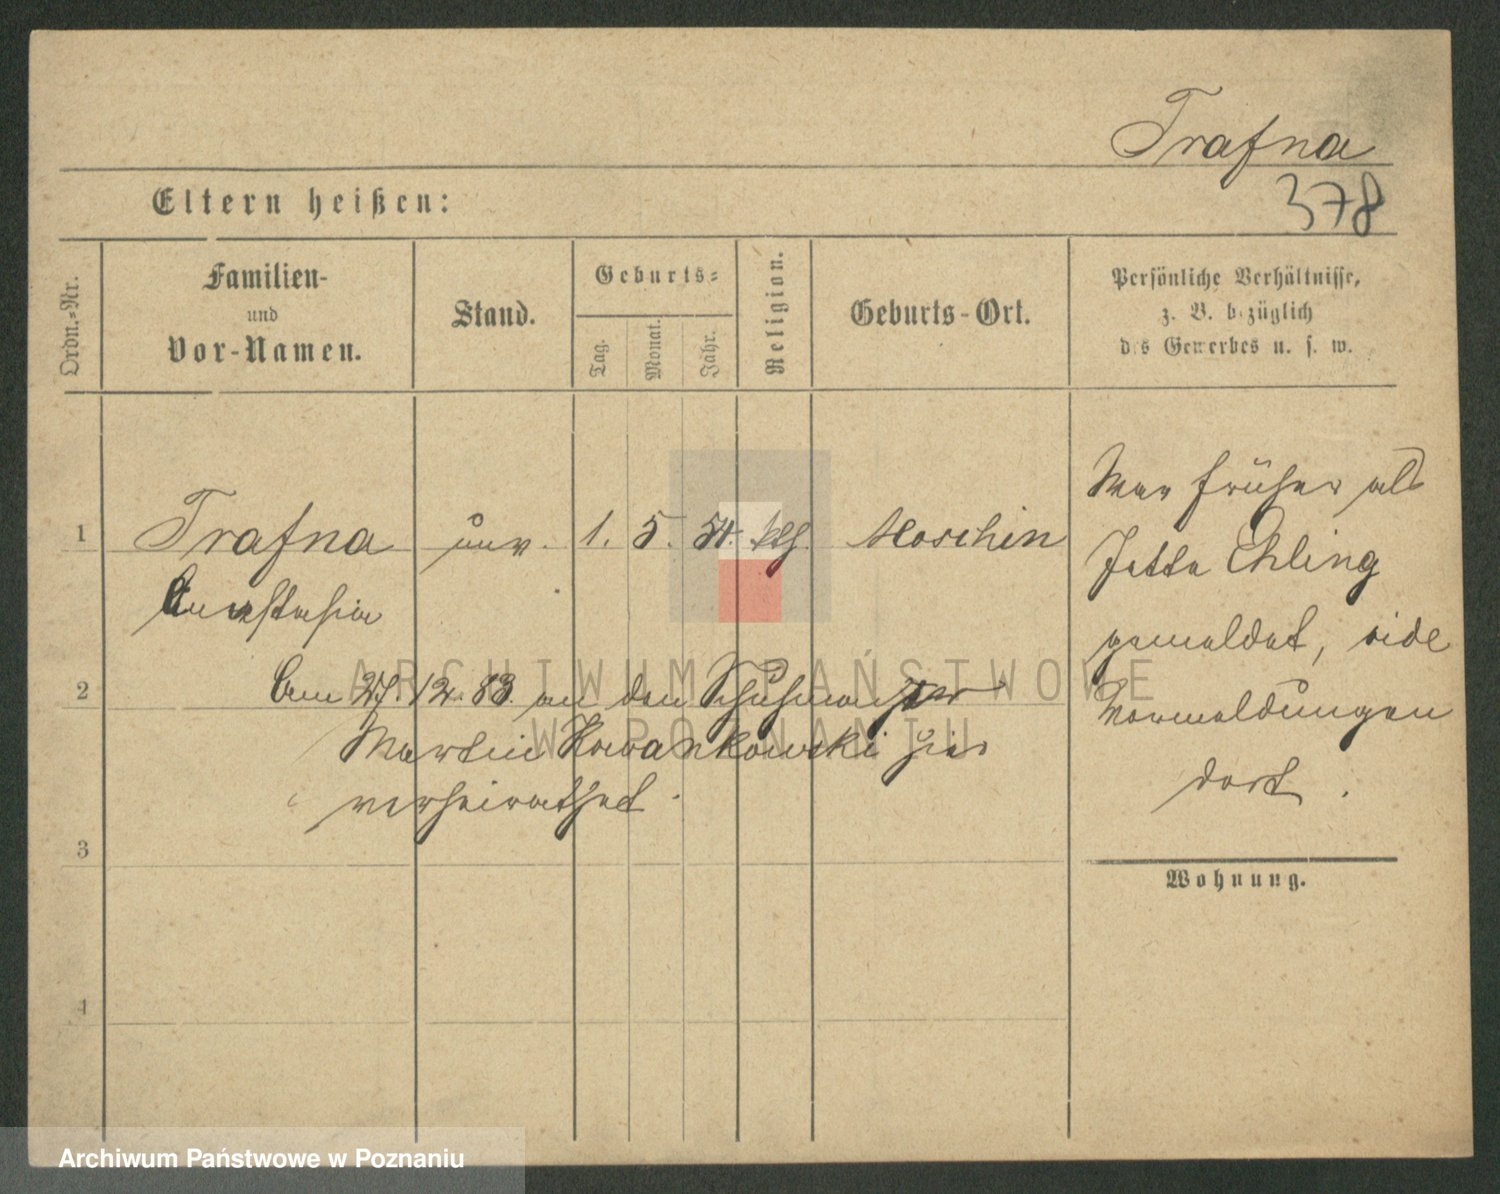 Trafna
378
Eltern heißen:
Ordn.-Nr.
Familien-
und
Vor-Namen.
Stand.
Geburts-
Tag.
Monat.
Jahr.
Religion.
Geburts-Ort.
Persönliche Verhältnisse,
z. B. bezüglich
des Gewerbes u. s. w.
1
Trafna
Anastasia
unv.
1.
5.
54.
ktl.
Moschin
War früher als
Jette Ehling
gemeldet, vide
Vormeldungen
dort.
2
Am 27.12.83. an den Schuhmacher
Martin Nowankowski hier
verheirathet.
3
Wohnung.
4
ARCHIWUM PAŃSTWOWE
W POZNANIU
Archiwum Państwowe w Poznaniu